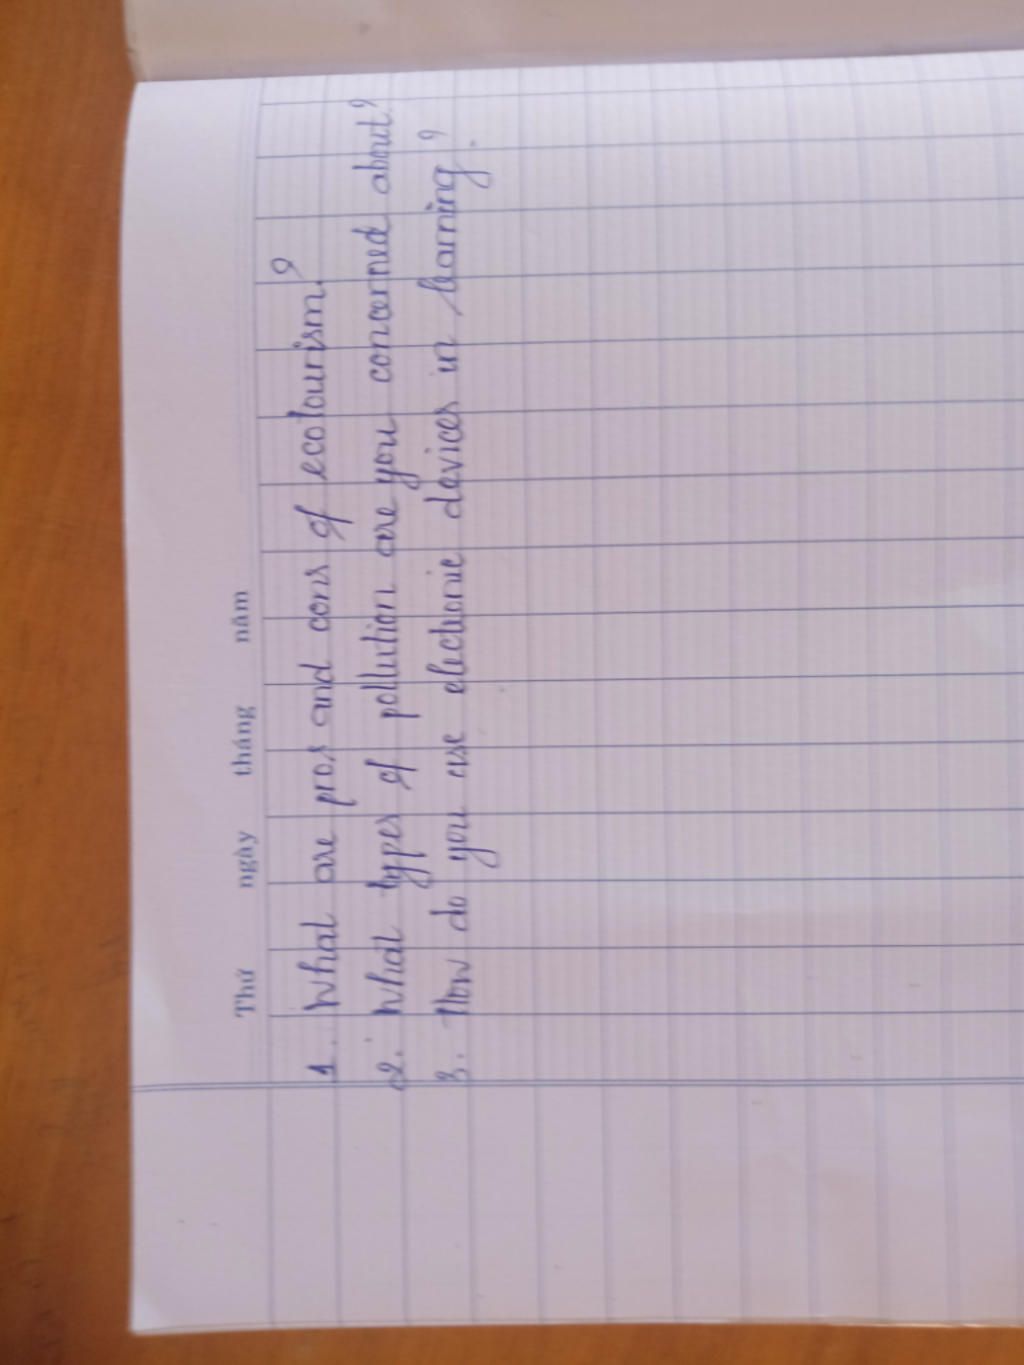 Thứ ngày tháng năm
1. What are pros and cons of ecotourism?
2. What types of pollution are you concerned about?
3. How do you use electronic devices in learning?